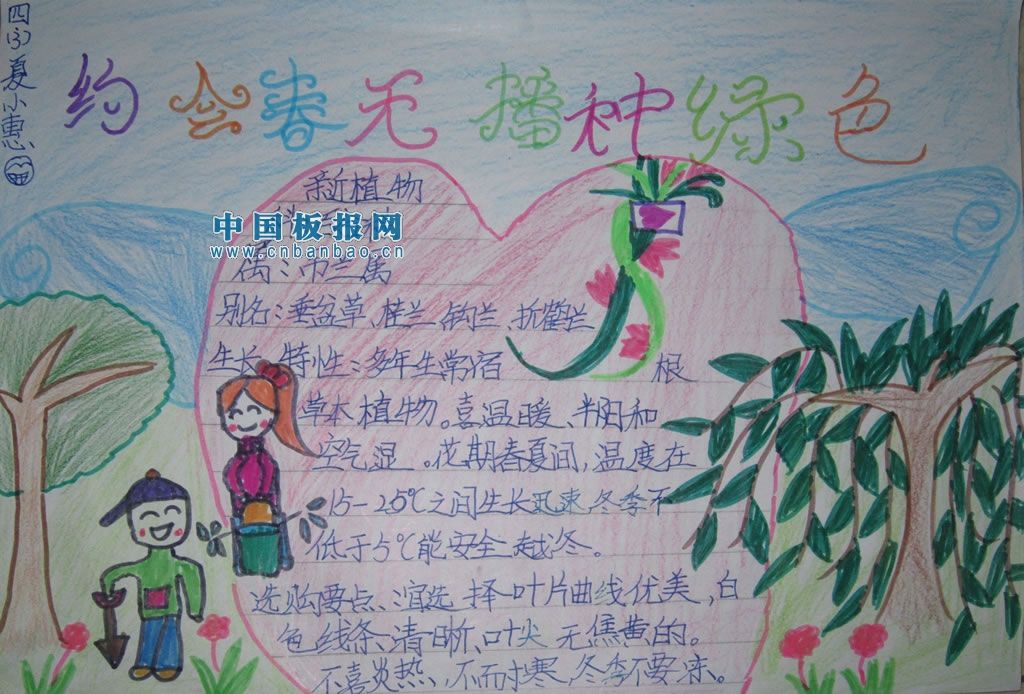 四(3)夏小惠
约会春天 播种绿色
新植物
中国板报网
www.cnbanbao.cn
属:巾兰属
别名:垂盆草、桂兰、钩兰、折鹤兰
生长特性:多年生常宿根
草本植物。喜温暖、半阴和
空气湿。花期春夏间,温度在
15-25℃之间生长迅速,冬季不
低于5℃能安全越冬。
选购要点、宜选择叶片曲线优美,白
色线条、清晰、叶尖无焦黄的。
不喜炎热,不耐寒,冬季不要冻。